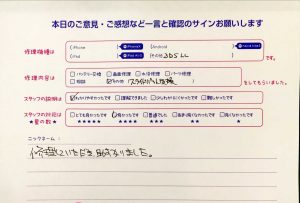 本日のご意見・ご感想など一言と確認のサインお願いします
修理機種は
iPhone
Android
iPad
その他 3DS LL
です。
修理内容は
バッテリー交換 画面修理 水没修理 パーツ修理
その他
をしてもらいました。
スタッフの説明は
わかりやすかったです 理解できました 少しわかりにくかったです 難しかったです
スタッフの対応は
★星の数★
とても良かったです 良かったです 普通でした
★★★★★ ★★★★ ★★★ ★★ ★
ニックネーム：
修理していただき助かりました。